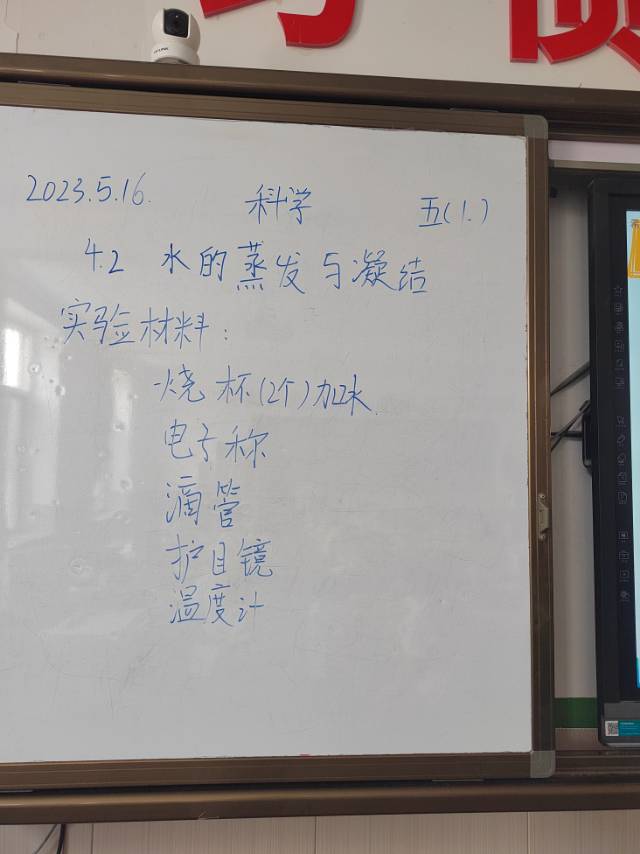 2023.5.16. 科学 五(1.)
4.2 水的蒸发与凝结
实验材料:
烧杯(2个)加水
电子称
滴管
护目镜
温度计